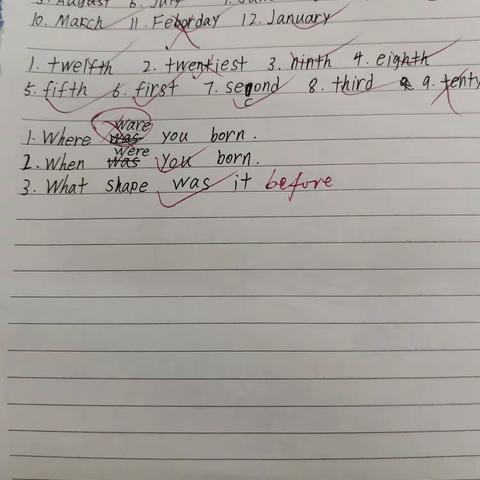 5. August 6. July 7. June
10. March 11. Feborday 12. January
1. twelfth 2. twentiest 3. ninth 4. eighth
5. fifth 6. first 7. second 8. third 9. tenty
ware
1. Where was you born.
were
2. When was you born.
3. What shape was it before